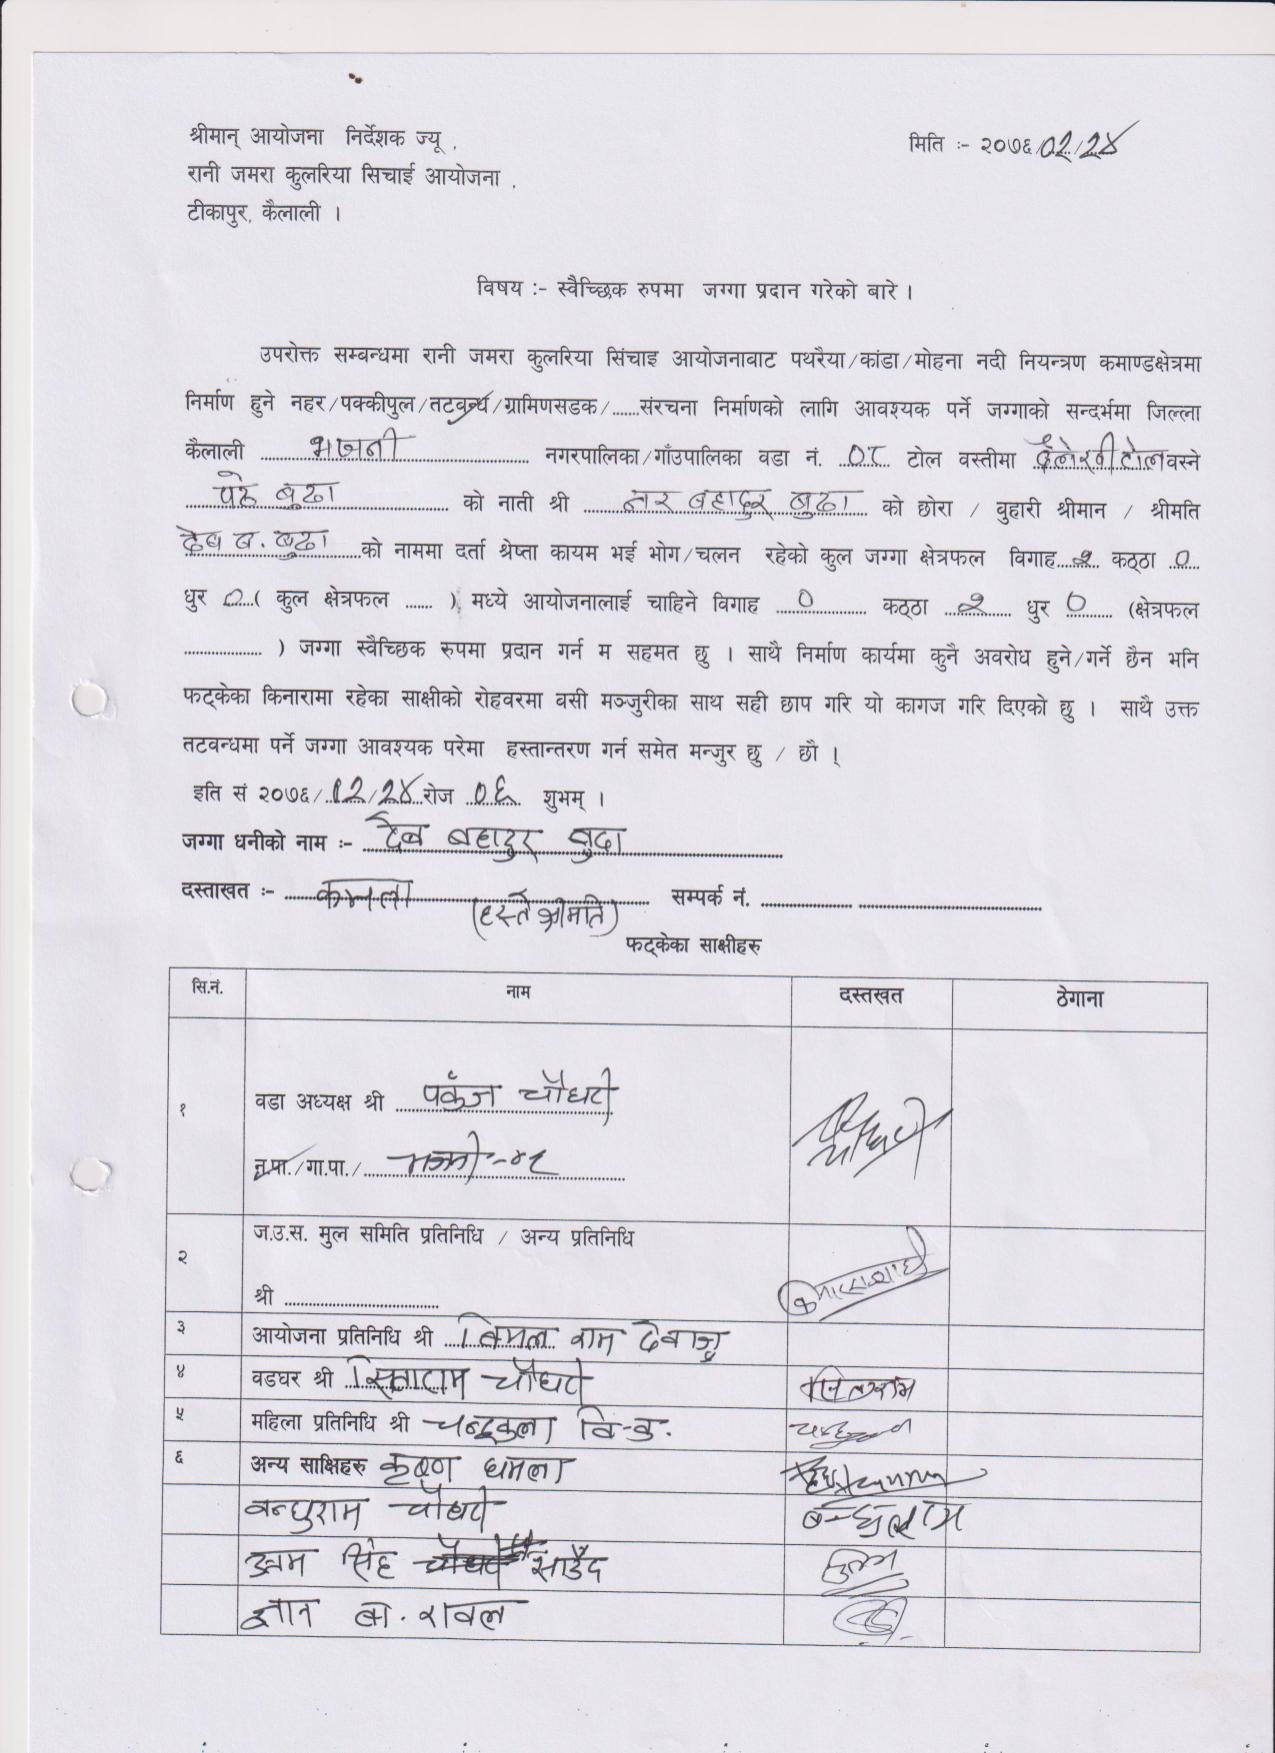 श्रीमान् आयोजना निर्देशक ज्यू , मिति :- २०७६/02/24
रानी जमरा कुलरिया सिचाई आयोजना ,
टीकापुर, कैलाली ।
विषय :- स्वैच्छिक रुपमा जग्गा प्रदान गरेको बारे ।
उपरोक्त सम्बन्धमा रानी जमरा कुलरिया सिंचाइ आयोजनावाट पथरैया/कांडा/मोहना नदी नियन्त्रण कमाण्डक्षेत्रमा
निर्माण हुने नहर/पक्कीपुल/तटबन्ध/ग्रामिणसडक/......संरचना निर्माणको लागि आवश्यक पर्ने जग्गाको सन्दर्भमा जिल्ला
कैलाली भजनी नगरपालिका/गाँउपालिका वडा नं. 0८ टोल वस्तीमा दैलेखी टोल वस्ने
परे बुढा को नाती श्री नर बहादुर बुढा को छोरा / वुहारी श्रीमान / श्रीमति
देब ब. बुढा को नाममा दर्ता श्रेष्ता कायम भई भोग/चलन रहेको कुल जग्गा क्षेत्रफल विगाह २ कठ्ठा 0
धुर 0 ( कुल क्षेत्रफल ...... ) मध्ये आयोजनालाई चाहिने विगाह 0 कठ्ठा २ धुर 0 (क्षेत्रफल
.................. ) जग्गा स्वैच्छिक रुपमा प्रदान गर्न म सहमत छु । साथै निर्माण कार्यमा कुनै अवरोध हुने/गर्ने छैन भनि
फट्केका किनारामा रहेका साक्षीको रोहवरमा वसी मञ्जुरीका साथ सही छाप गरि यो कागज गरि दिएको छु । साथै उक्त
तटवन्धमा पर्ने जग्गा आवश्यक परेमा हस्तान्तरण गर्न समेत मन्जुर छु / छौ ।
इति सं २०७६/02/24 रोज 0६ शुभम् ।
जग्गा धनीको नाम :- देब बहादुर बुढा
दस्ताखत :- कमला सम्पर्क नं. ....................
(हस्ते श्रीमति)
फट्केका साक्षीहरु
सि.नं. नाम दस्तखत ठेगाना
१ वडा अध्यक्ष श्री पकंज चौधरी
न.पा./गा.पा./
२ ज.उ.स. मुल समिति प्रतिनिधि / अन्य प्रतिनिधि
श्री ....................
३ आयोजना प्रतिनिधि श्री बिमल राम देवाजु
४ वडघर श्री सिताराम चौधरी सिताराम
५ महिला प्रतिनिधि श्री चन्द्रकला वि-क.
६ अन्य साक्षिहरु कृष्ण धमला
बन्धुराम चौधरी बन्धुराम
उत्तम सिंह साउँद
ज्ञान बा. रावल